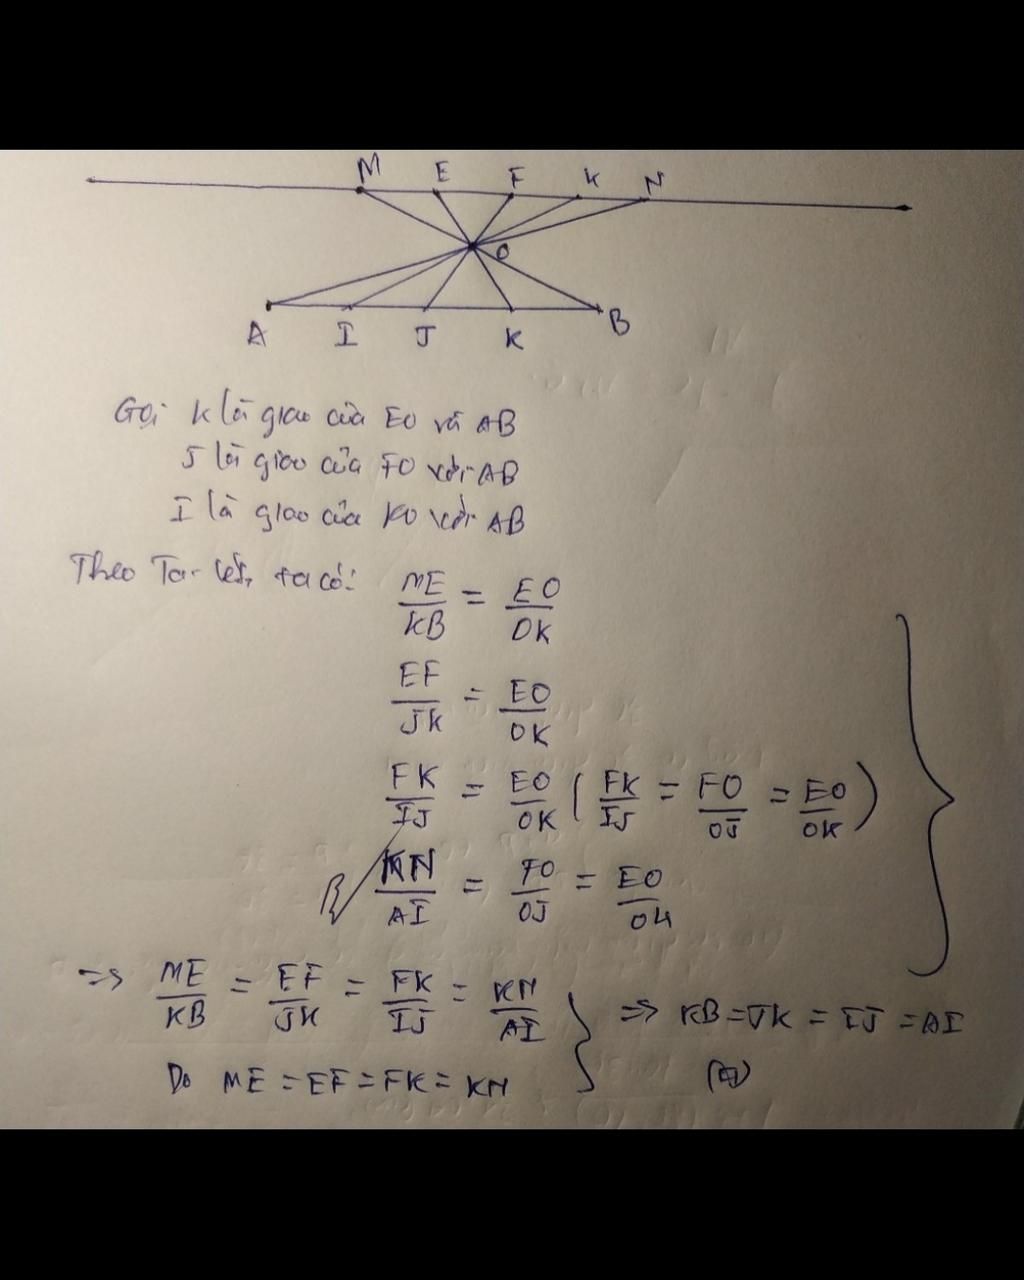 M E F K N
O
A I J K B
Gọi K là giao của EO và AB
J là giao của FO với AB
I là giao của KO với AB
Theo Ta-lét, ta có:
ME/KB = EO/OK
EF/JK = EO/OK
FK/IJ = EO/OK (FK/IJ = FO/OJ = EO/OK)
KN/AI = FO/OJ = EO/OK
=> ME/KB = EF/JK = FK/IJ = KN/AI
Do ME = EF = FK = KN
=> KB = JK = IJ = AI